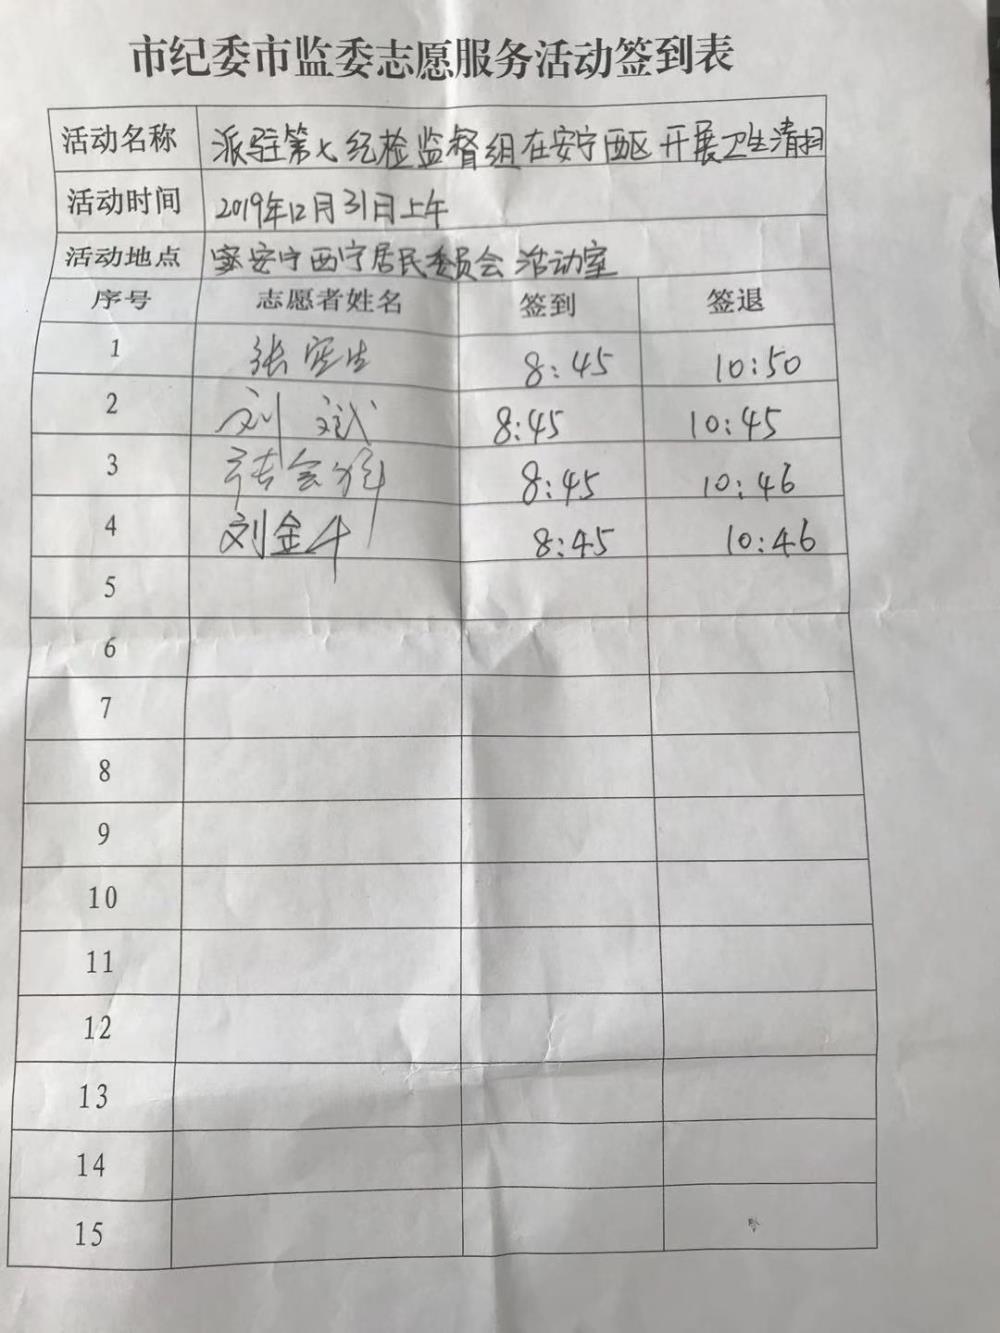 市纪委市监委志愿服务活动签到表
活动名称 派驻第七纪检监督组在安宁西区开展卫生清扫
活动时间 2019年12月31日上午
活动地点 安宁西宁居民委员会活动室
序号 志愿者姓名 签到 签退
1 张 8:45 10:50
2 刘斌 8:45 10:45
3 8:45 10:46
4 刘金斗 8:45 10:46
5
6
7
8
9
10
11
12
13
14
15